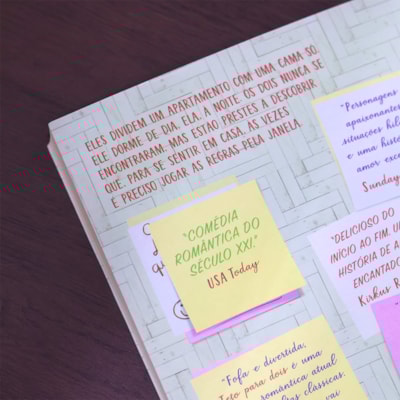 ELES DIVIDEM UM APARTAMENTO COM UMA CAMA SÓ.
ELE DORME DE DIA, ELA, À NOITE. OS DOIS NUNCA SE
ENCONTRARAM, MAS ESTÃO PRESTES A DESCOBRIR
QUE, PARA SE SENTIR EM CASA, ÀS VEZES
É PRECISO JOGAR AS REGRAS PELA JANELA.
"Personagens
apaixonantes
situações hil
e uma histó
amor exce
Sunday
"COMÉDIA
ROMÂNTICA DO
SÉCULO XXI."
USA Today
"DELICIOSO DO
INÍCIO AO FIM, U
HISTÓRIA DE A
ENCANTADO
Kirkus R
"Fofa e divertida,
Teto para dois é uma
romântica atual
clássicas.
vai